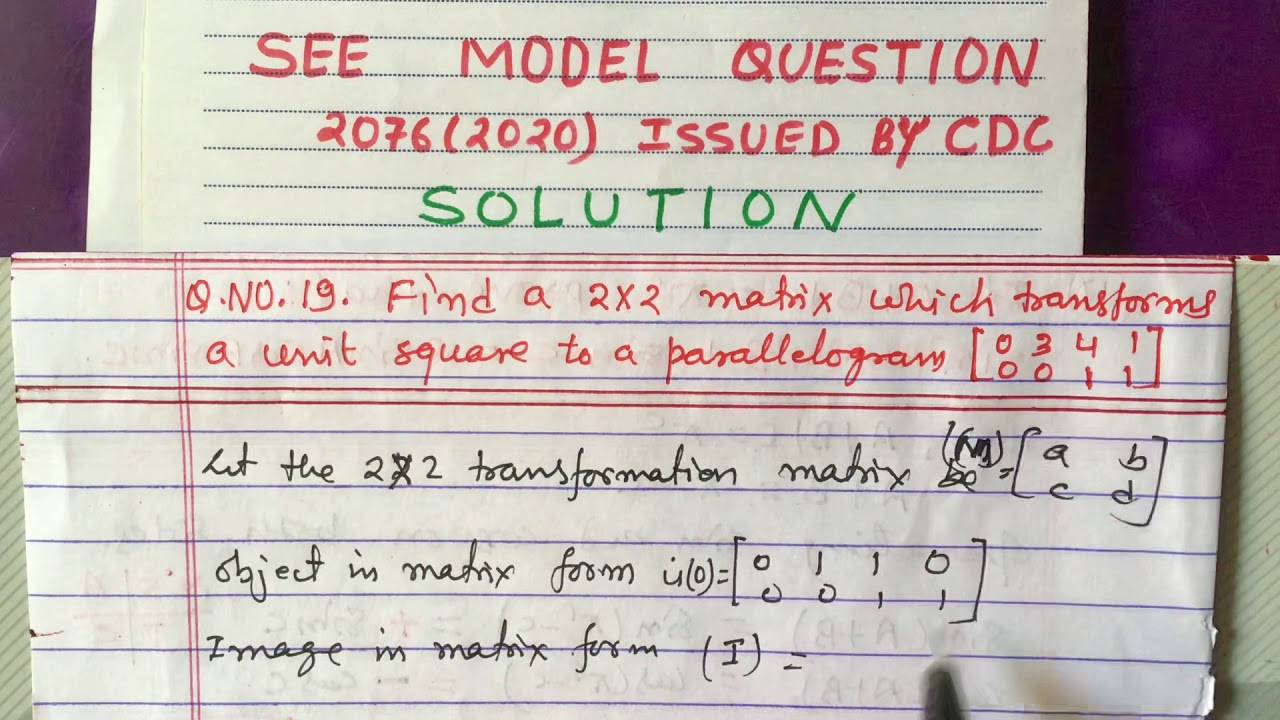 SEE MODEL QUESTION
2076(2020) ISSUED BY CDC
SOLUTION
Q.NO.19. Find a 2x2 matrix which transforms
a unit square to a parallelogram [0 3 4 1
0 0 1 1]
Let the 2x2 transformation matrix (M) = [a b
c d]
object in matrix form is (O) = [0 1 1 0
0 0 1 1]
Image in matrix form (I) =